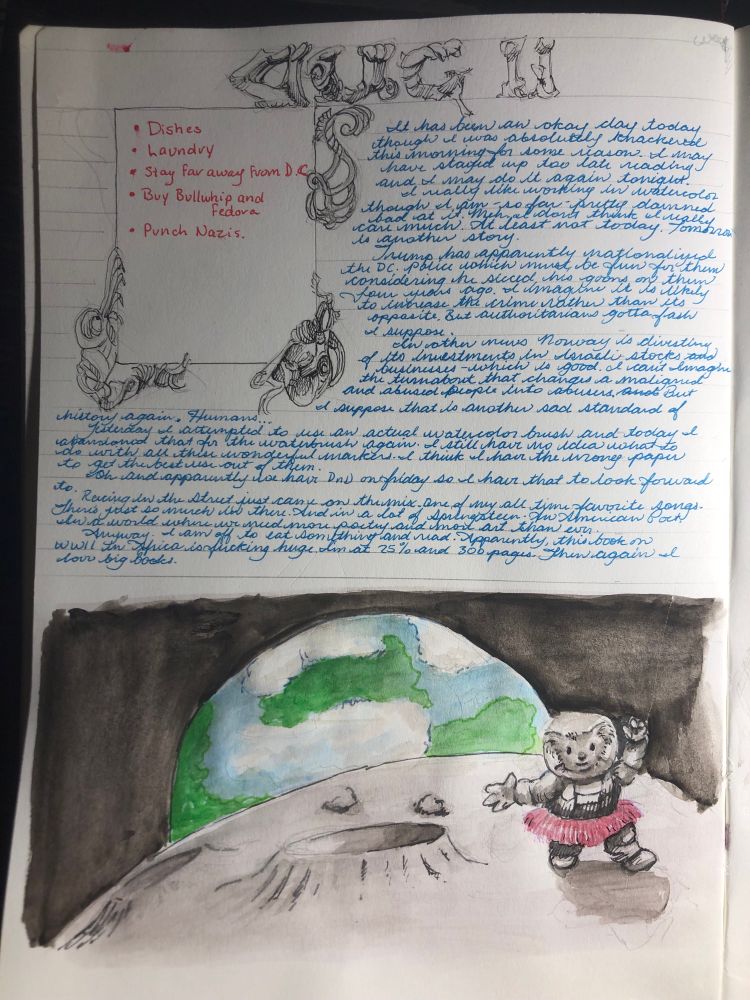 AUG 11
• Dishes
• Laundry
• Stay far away from D.C.
• Buy Bullwhip and
Fedora
• Punch Nazis.
It has been an okay day today
though I was absolutely knackered
this morning for some reason. I may
have stayed up too late reading
and I may do it again tonight.
I really like working in watercolor
though I am - so far - pretty damned
bad at it. Meh, I don't think I really
care much. At least not today. Tomorrow
is another story.
Trump has apparently nationalized
the DC. Police which must be fun for them
considering he sicced his goons on them
four years ago. I imagine it is likely
to increase the crime rather than its
opposite. But authoritarians gotta fash
I suppose.
In other news Norway is divesting
of its investments in Israeli stocks and
businesses - which is good. I can't imagine
the turnabout that changes a maligned
and abused people into abusers. But
I suppose that is another sad standard of
history again. Humans.
Yesterday I attempted to use an actual watercolor brush and today I
abandoned that for the waterbrush again. I still have no idea what to
do with all these wonderful markers. I think I have the wrong paper
to get the best use out of them.
Oh and apparently we have DnD on friday so I have that to look forward
to.
Racing in the Street just came on the mix. One of my all time favorite songs.
There's just so much in there. And in a lot of Springsteen. An American Poet
in a world where we need more poetry and more art than ever.
Anyway. I am off to eat something and read. Apparently, this book on
WWII In Africa is fucking huge. I'm at 25% and 300 pages. Then again I
love big books.